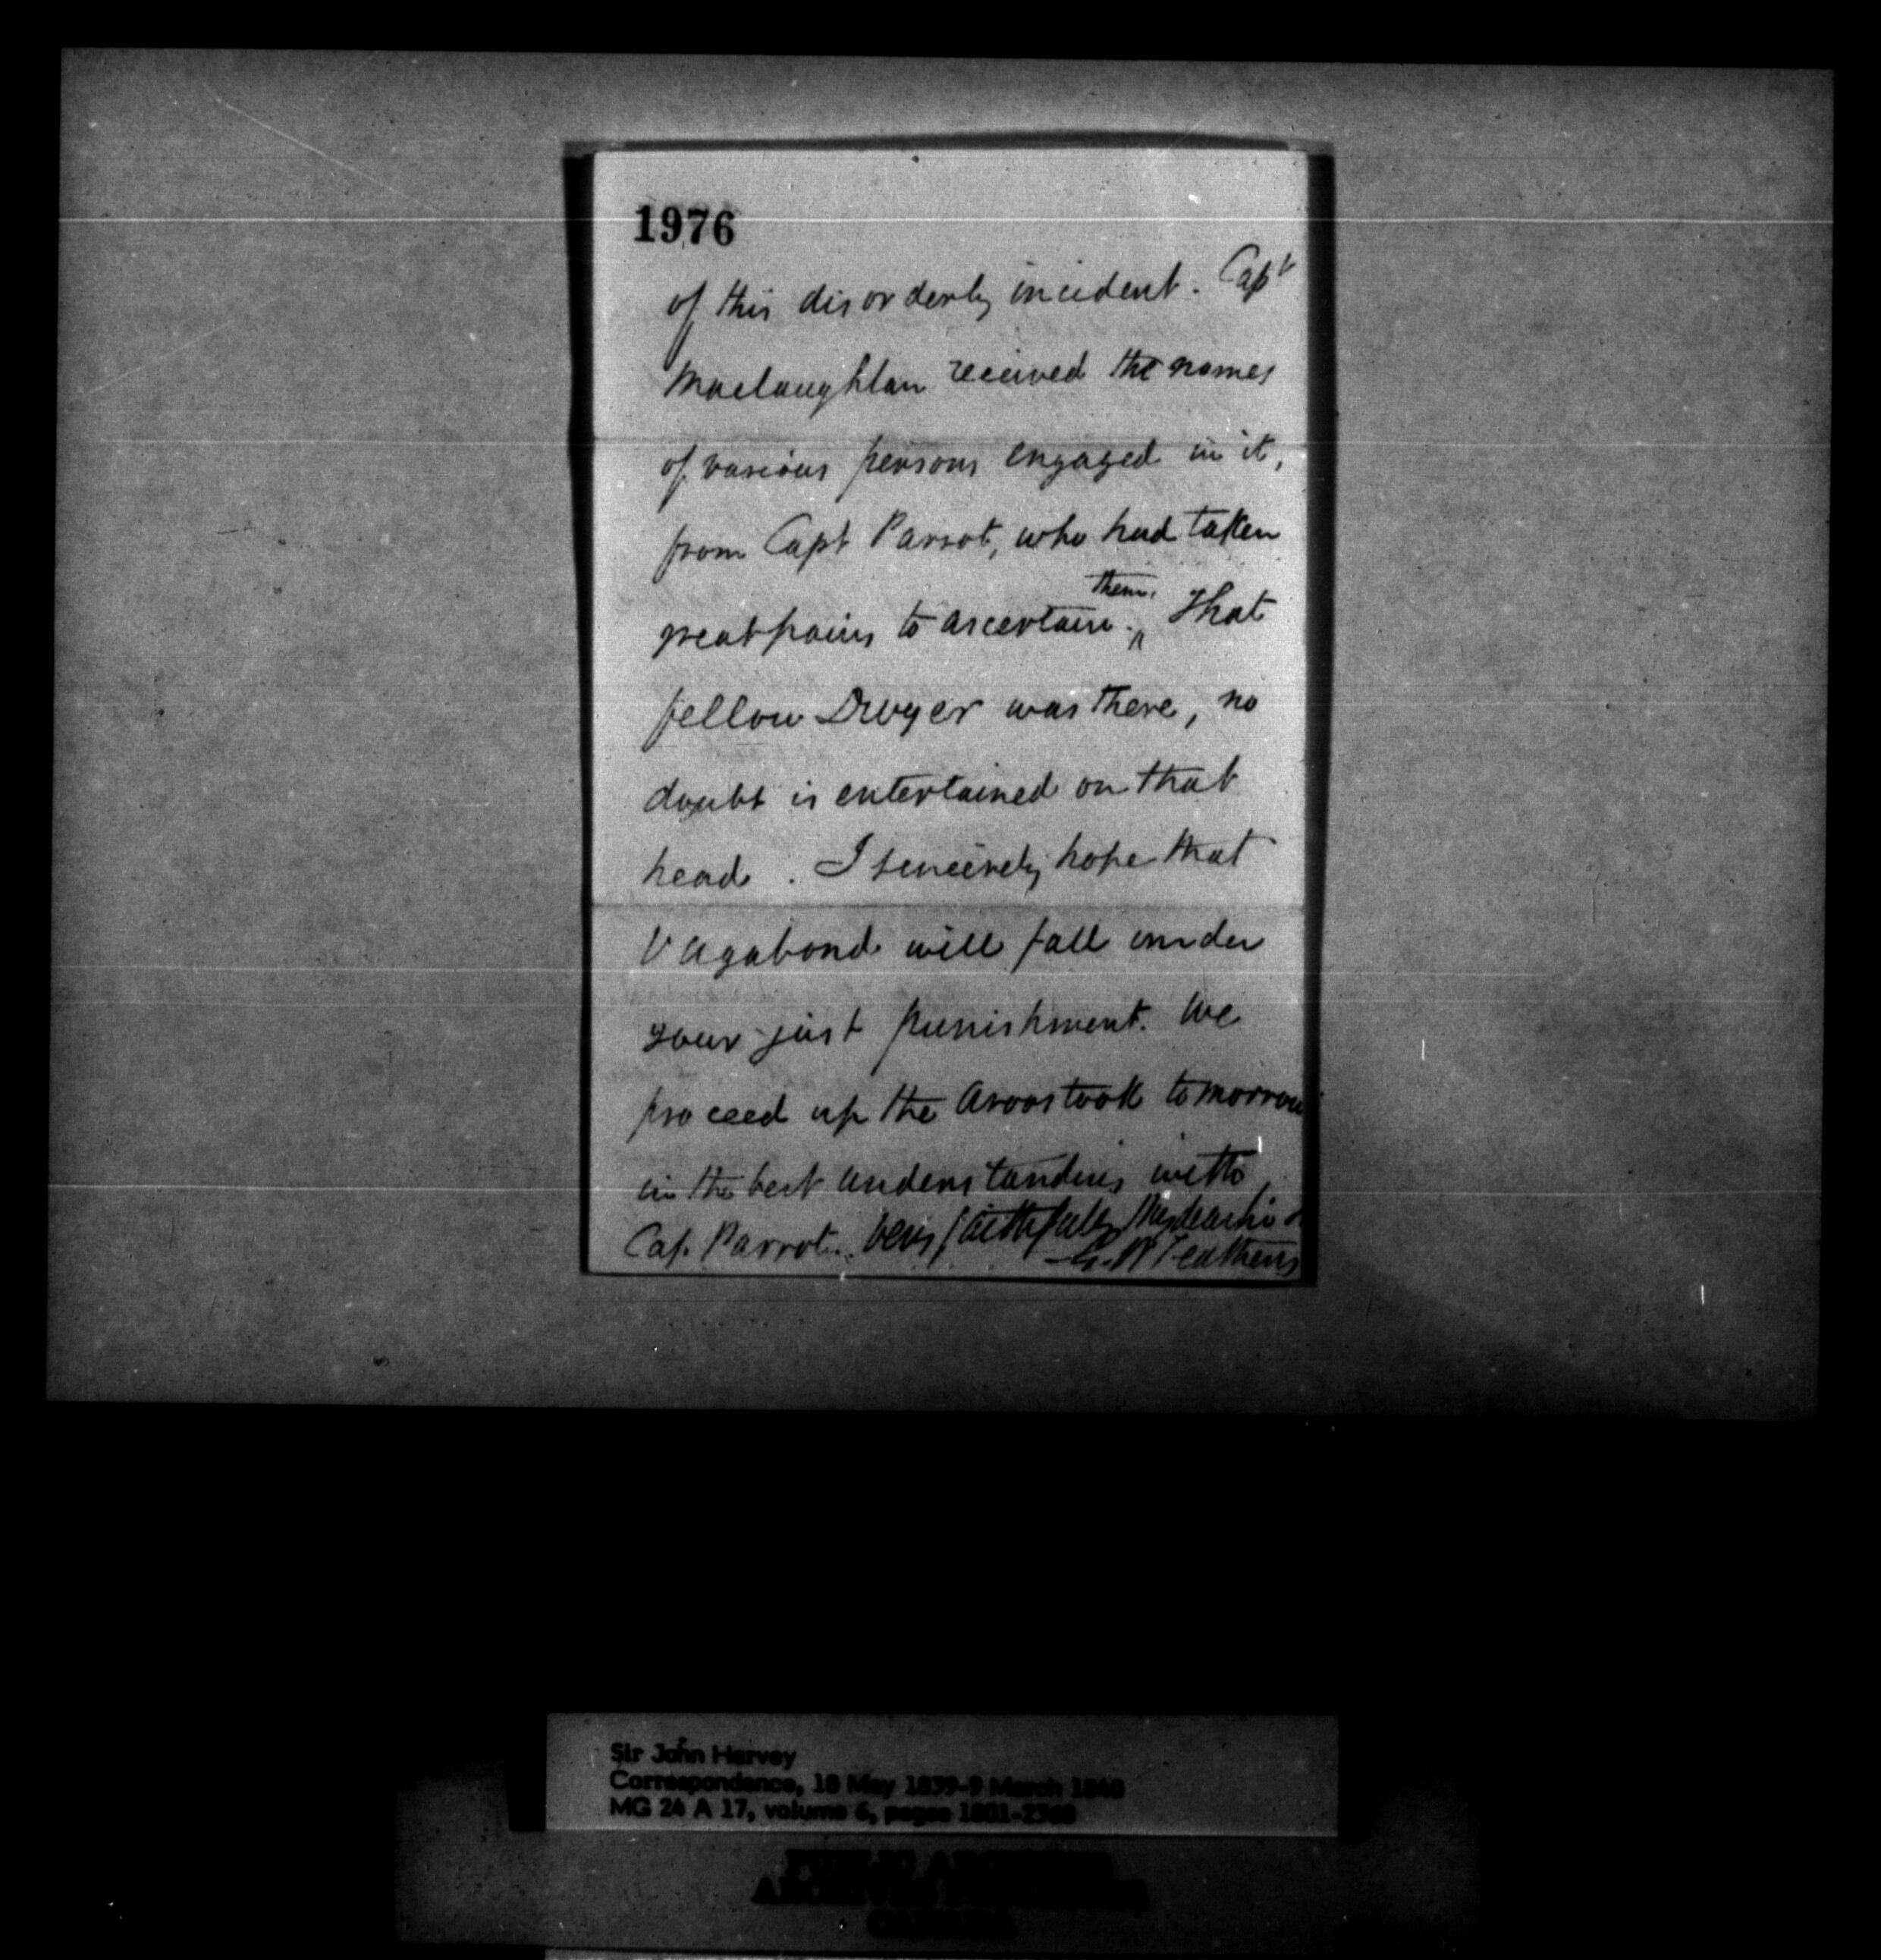 1976
of this disorderly incident. Capt
Maclaughlan received the names
of various persons engaged in it,
from Capt Parrot, who had taken
them.
great pains to ascertain. ^ That
fellow Dwyer was there, no
doubt is entertained on that
head. I sincerely hope that
Vagabond will fall under
your just punishment. We
proceed up the Aroostook tomorrow
in the best understanding with
Cap. Parrot. Very faithfully My dear
Sir John Harvey
Correspondence, 18 May 1839-9 March 1840
MG 24 A 17, volume 6, pages 1801-2368
PUBLIC ARCHIVES
ARCHIVES PUBLIQUES
CANADA